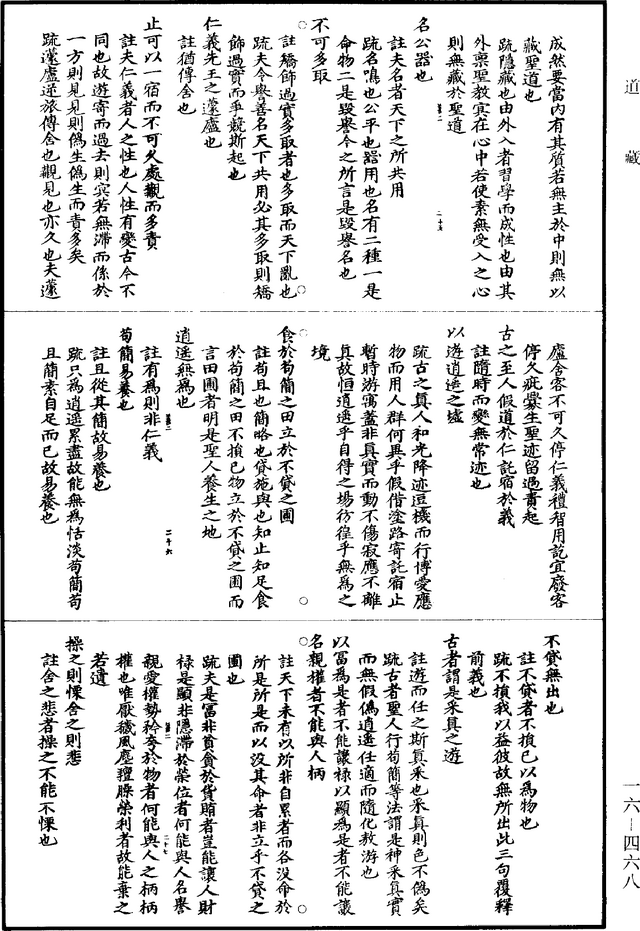 道藏
成然要當內有其質若無主於中則無以
藏聖道也
疏隱藏也由外入者習學而成性也由其
外禀聖教宲在心中若使素無受入之心
則無藏於聖道
名公器也
註夫名者天下之所共用
疏名鳴也公平也器用也名有二種一是
命物二是毀譽今之所言是毀譽名也
不可多取
註矯飾過實多取者也多取而天下亂也
疏夫令譽善名天下共用必其多取則矯
飾過實而爭競斯起也
仁義先王之蘧廬也
註猶傳舍也
止可以一宿而不可久處觀而多責
註夫仁義者人之性也人性有變古今不
同也故遊寄而過去則冥若無滯而係於
一方則見見則偽生偽生而責多矣
疏蘧廬逆旅傳舍也觀見也亦久也夫蘧
廬舍客不可久停仁義禮智用訖宜廢客
停久疵釁生聖迹留過責起
古之至人假道於仁託宿於義
註隨時而變無常迹也
以遊逍遥之墟
疏古之真人和光降迹逗機而行博愛應
物而用人群何異乎假借塗路寄託宿止
暫時游寓蓋非真實而動不傷寂應不離
真故恒逍遥乎自得之場彷徨乎無為之
境
食於苟簡之田立於不貸之圃
註苟且也簡略也貸施與也知止知足食
於苟簡之田不損己物立於不貸之圃而
言田圃者明是聖人養生之地
逍遥無為也
註有為則非仁義
苟簡易養也
註且從其簡故易養也
疏只為逍遥累盡故能無為恬淡苟簡苟
且簡素自足而已故易養也
不貸無出也
註不貸者不損己以為物也
疏不損我以益彼故無所出此三句覆釋
前義也
古者謂是采真之遊
註遊而任之斯真采也采真則色不偽矣
疏古者聖人行苟簡等法謂是神采真實
而無假偽逍遥任適而隨化敖游也
以富為是者不能讓祿以顯為是者不能讓
名親權者不能與人柄
註天下未有以所非自累者而各没命於
所是所是而以没其命者非立乎不貸之
圃也
疏夫是富非貧貪於貨賄者豈能讓人財
祿是顯非隱滯於榮位者何能與人名譽
親愛權勢矜夸於物者何能與人之柄柄
權也唯厭穢風塵羶臊榮利者故能棄之
若遺
操之則慄舍之則悲
註舍之悲者操之不能不慄也
一六—四六八